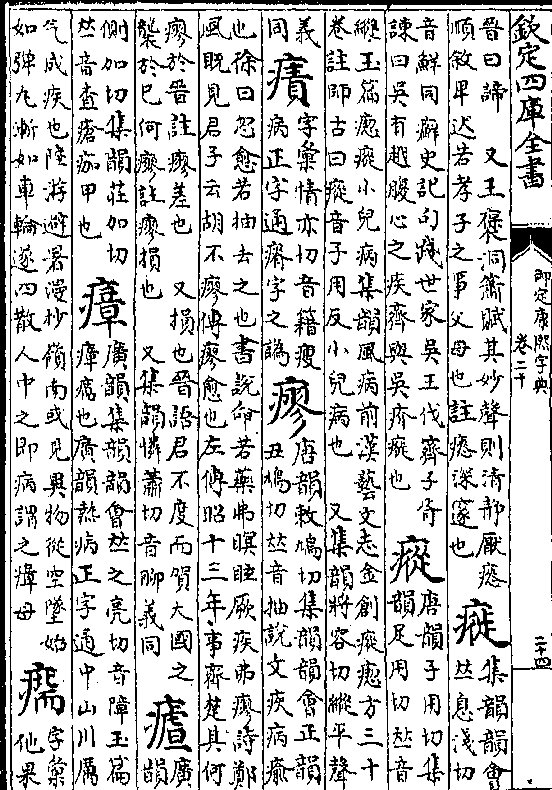 欽定四庫全書
御定康熙字典
卷二十
二十四
晉曰諦 又王褒洞簫賦其妙聲則清静厭瘱
順敘卑迏若孝子之事父母也註瘱深邃也
集韻韻會
𠀤息淺切
音鮮同癬史記句踐世家吳王伐齊子胥
諫曰吳有越腹心之疾齊與吳疥也
瘲
唐韻子用切集
韻足用切𠀤音
縱玉篇瘛瘲小兒病集韻風病前漢藝文志金創瘲瘛方三十
卷註師古曰瘲音子用反小兒病也 又集韻將容切縱平聲
義
同
字彙情亦切音籍瘦
病正字通瘠字之譌
瘳
唐韻敕鳩切集韻韻會正韻
丑鳩切𠀤音抽說文疾病瘉
也徐曰忽愈若抽去之也書說命若藥弗瞑眩厥疾弗瘳詩鄭
風既見君子云胡不瘳傳瘳愈也左傳昭十三年事齊楚其何
瘳於晉註瘳差也 又損也晉語君不度而賀大國之
襲於已何瘳註瘳損也 又集韻憐蕭切音聊義同
廣
韻
側加切集韻莊加切
𠀤音查瘡痂甲也
瘴
廣韻集韻韻會𠀤之亮切音障玉篇
瘴癘也廣韻熱病正字通中山川厲
气成疾也陸游避暑漫抄嶺南或見異物從空墜始
如彈丸漸如車輪遂四散人中之即病謂之瘴母
字彙
他果